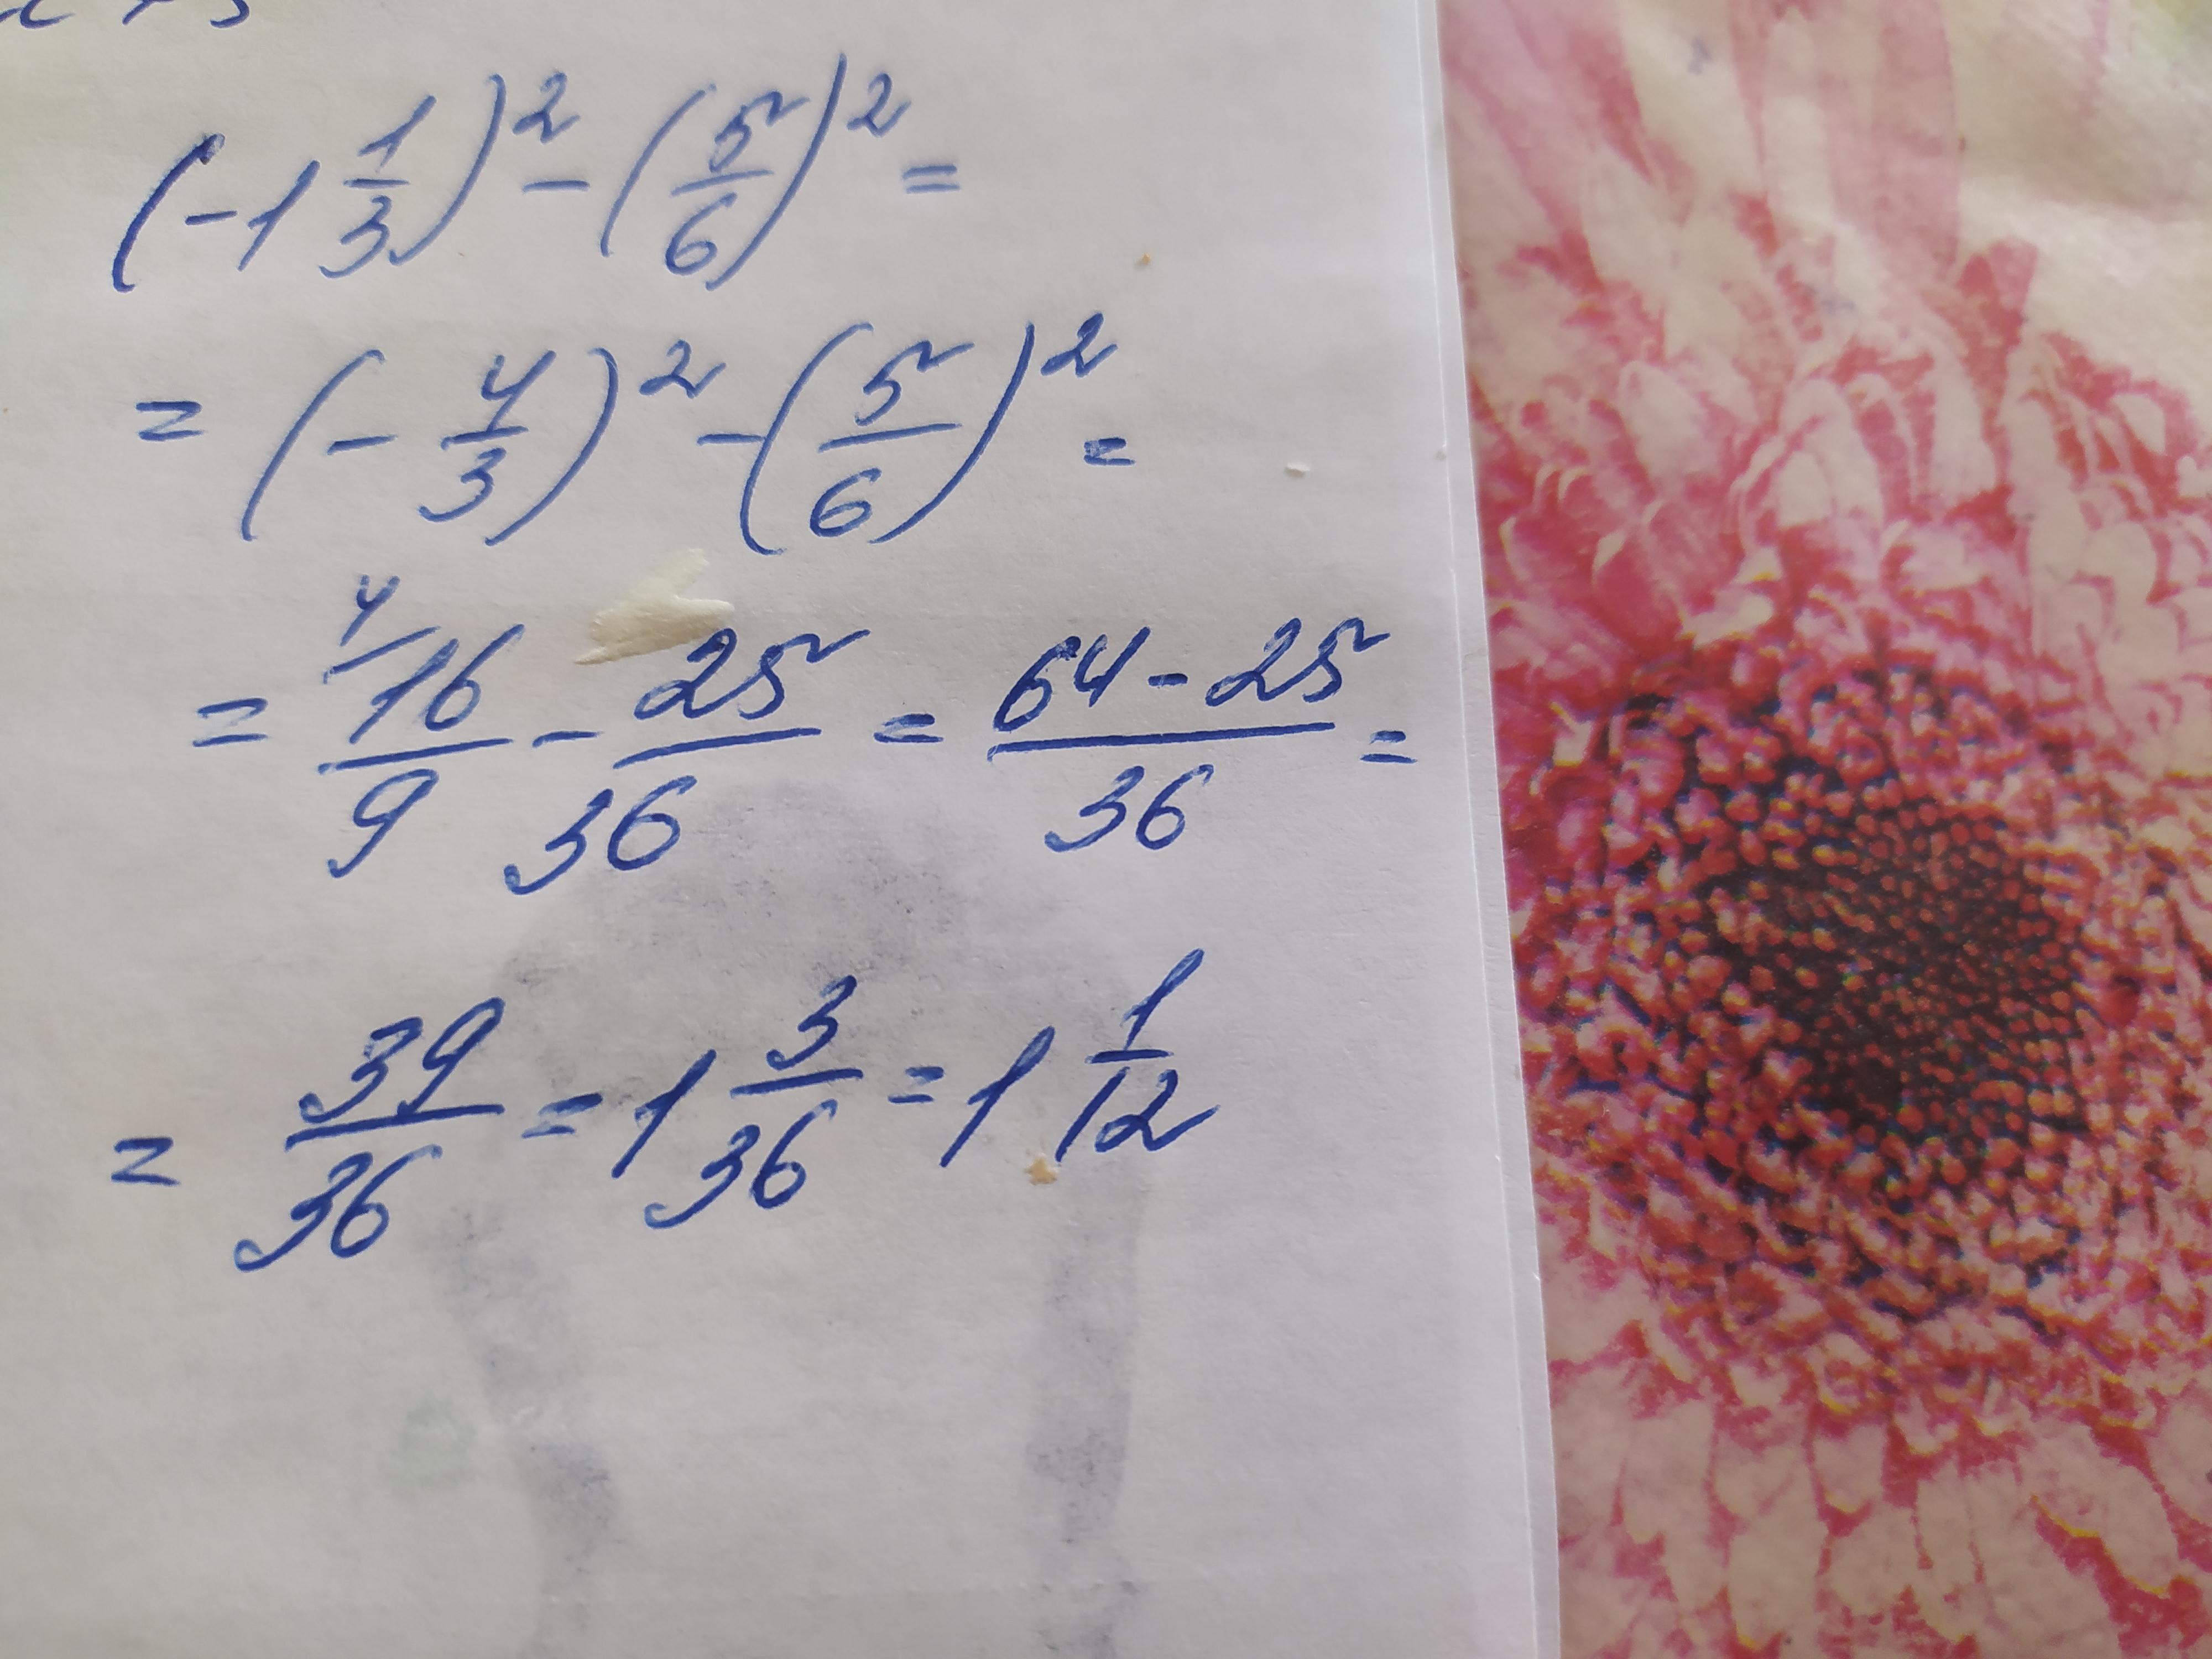 (-1 1/3)² - (5/6)² =
= (- 4/3)² - (5/6)² =
= ⁴⁄16/9 - 25/36 = (64 - 25)/36 =
= 39/36 = 1 3/36 = 1 1/12